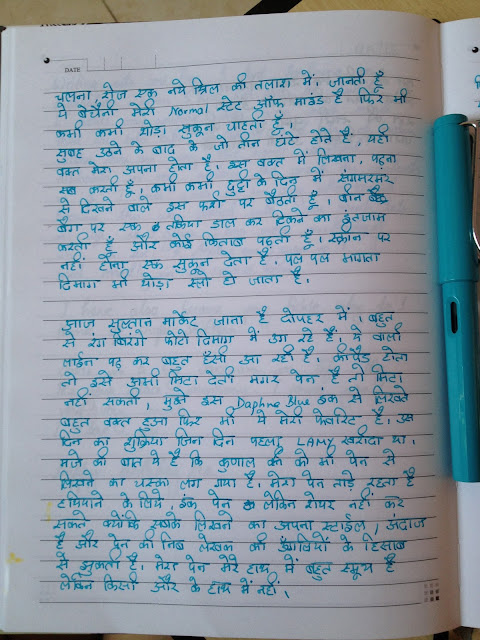 DATE
चलना, रोज एक नये थ्रिल की तलाश में. जानती हूँ
ये बेचैनी मेरी Normal स्टेट ऑफ माइंड है. फिर भी
कभी कभी थोड़ा सुकून चाहती हूँ.
सुबह उठने के बाद के जो तीन घंटे होते हैं, यही
वक्त मेरा अपना होता है. इस वक्त में लिखना, पढ़ना
सब करती हूँ. कभी कभी छुट्टी के दिन में संगमरमर
से दिखने वाले इस फर्श पर बैठती हूँ. बीन
बैग पर एक तकिया डाल कर टिकने का इंतजाम
करती हूँ और कोई किताब पढ़ती हूँ. स्क्रीन पर
नहीं होना एक सुकून देता है. पल पल भागता
दिमाग भी थोड़ा स्लो हो जाता है.
आज सुल्तान मार्केट जाना है दोपहर में. बहुत
से रंग बिरंगे फोटो दिमाग में उग रहे हैं. ये वाली
लाईन पढ़ कर बहुत हँसी आ रही है. कीपैड होता
तो इसे अभी मिटा देती मगर पेन है तो मिटा
नहीं सकती, मुझे इस Daphne Blue इंक से लिखते
बहुत वक्त हुआ फिर भी ये मेरी फेवरिट है. उस
दिन का शुक्रिया जिस दिन पहला LAMY खरीदा था.
मजे की बात ये है कि कुणाल को भी पेन से
लिखने का चस्का लग गया है. मेरा पेन ताड़े रहता है
हथियाने के लिये. इंक पेन लेकिन शेयर नहीं कर
सकते क्योंकि सबके लिखने का अपना स्टाईल, अंदाज
है और पेन की निब लेखक की उँगलियों के हिसाब
से झुकती है. मेरा पेन मेरे हाथ में बहुत स्मूथ है
लेकिन किसी और के हाथ में नहीं.